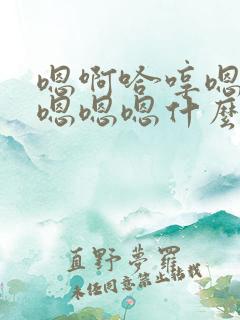 嗯啊哈啍嗯
嗯嗯嗯什麽
直野夢羅
未任同意禁止转载